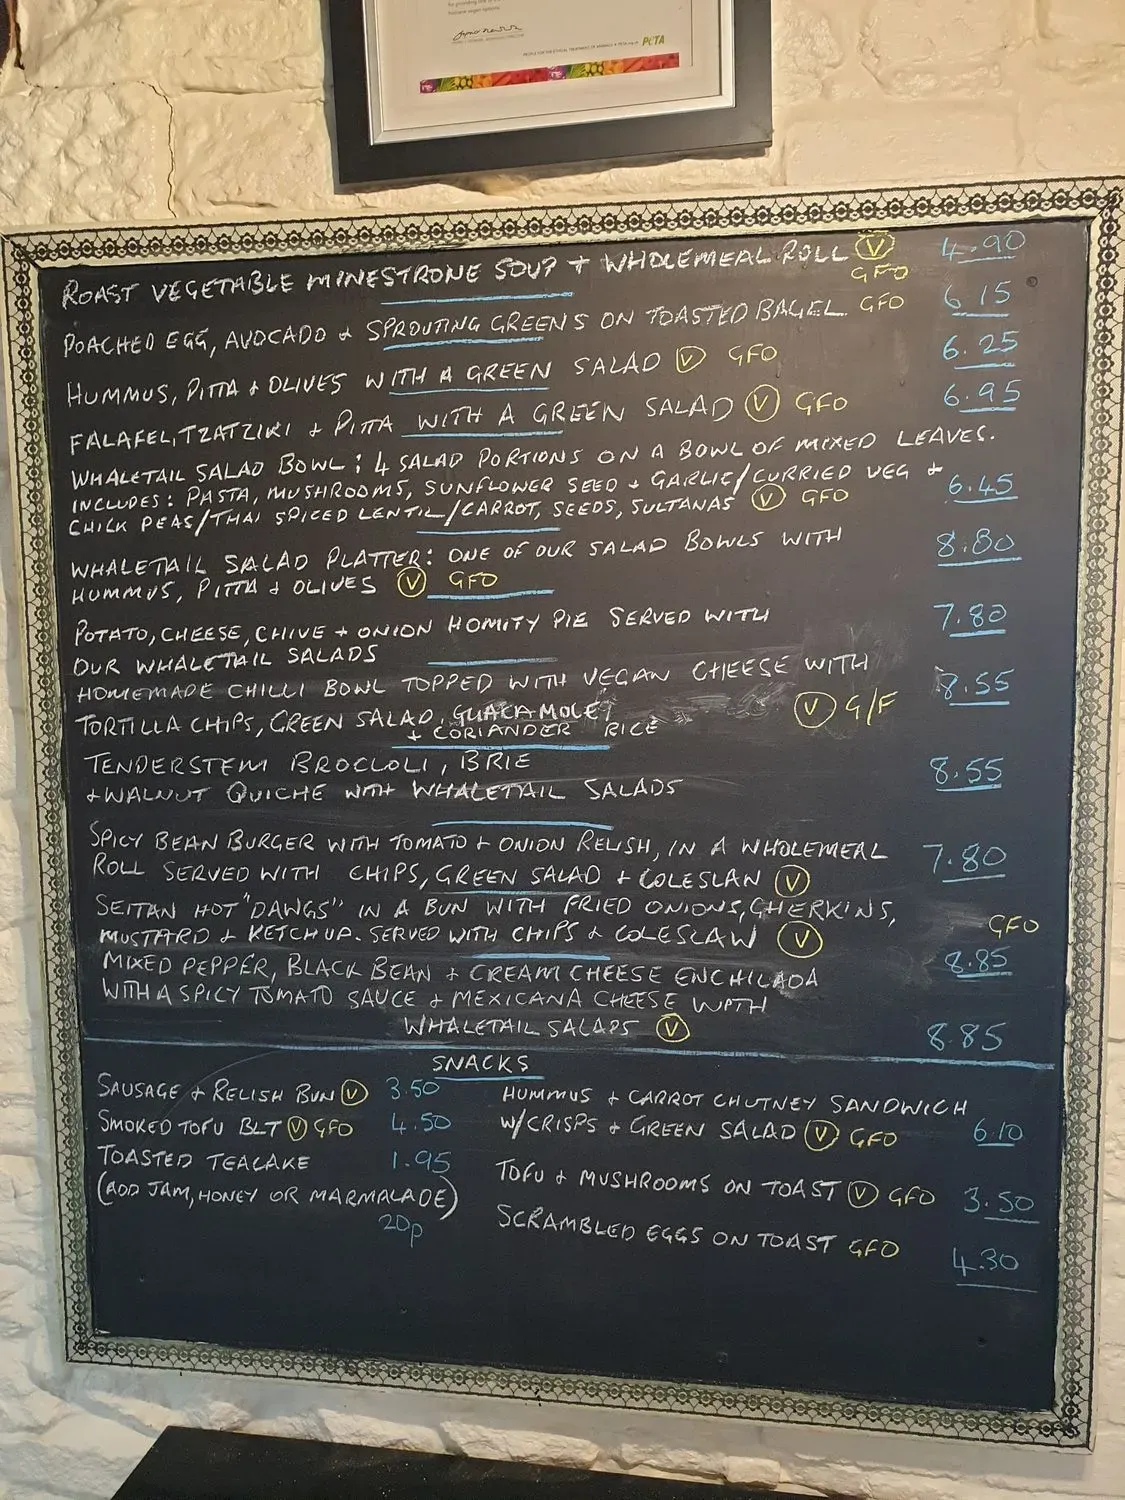 PEOPLE FOR THE ETHICAL TREATMENT OF ANIMALS
PETA
ROAST VEGETABLE MINESTRONE SOUP + WHOLEMEAL ROLL V GFO 4.90
POACHED EGG, AVOCADO + SPROUTING GREENS ON TOASTED BAGEL GFO 6.15
HUMMUS, PITTA + OLIVES WITH A GREEN SALAD V GFO 6.25
FALAFEL, TZATZIKI + PITTA WITH A GREEN SALAD V GFO 6.95
WHALETAIL SALAD BOWL: 4 SALAD PORTIONS ON A BOWL OF MIXED LEAVES.
INCLUDES: PASTA, MUSHROOMS, SUNFLOWER SEED + GARLIC/CURRIED VEG +
CHICK PEAS/THAI SPICED LENTIL/CARROT, SEEDS, SULTANAS V GFO 6.45
WHALETAIL SALAD PLATTER: ONE OF OUR SALAD BOWLS WITH 8.80
HUMMUS, PITTA + OLIVES V GFO
POTATO, CHEESE, CHIVE + ONION HOMITY PIE SERVED WITH 7.80
OUR WHALETAIL SALADS
HOMEMADE CHILLI BOWL TOPPED WITH VEGAN CHEESE WITH 8.55
TORTILLA CHIPS, GREEN SALAD, GUACAMOLE, V G/F
+ CORIANDER RICE
TENDERSTEM BROCLOLI, BRIE
+ WALNUT QUICHE WITH WHALETAIL SALADS 8.55
SPICY BEAN BURGER WITH TOMATO + ONION RELISH, IN A WHOLEMEAL 7.80
ROLL SERVED WITH CHIPS, GREEN SALAD + COLESLAW V
SEITAN HOT "DAWGS" IN A BUN WITH FRIED ONIONS, GHERKINS, GFO
MUSTARD + KETCHUP. SERVED WITH CHIPS + COLESLAW V 8.85
MIXED PEPPER, BLACK BEAN + CREAM CHEESE ENCHILADA
WITH A SPICY TOMATO SAUCE + MEXICANA CHEESE WITH
WHALETAIL SALADS V 8.85
SNACKS
SAUSAGE + RELISH BUN V 3.50
SMOKED TOFU BLT V GFO 4.50
TOASTED TEACAKE 1.95
(ADD JAM, HONEY OR MARMALADE)
20p
HUMMUS + CARROT CHUTNEY SANDWICH
W/CRISPS + GREEN SALAD V GFO 6.10
TOFU + MUSHROOMS ON TOAST V GFO 3.50
SCRAMBLED EGGS ON TOAST GFO 4.30